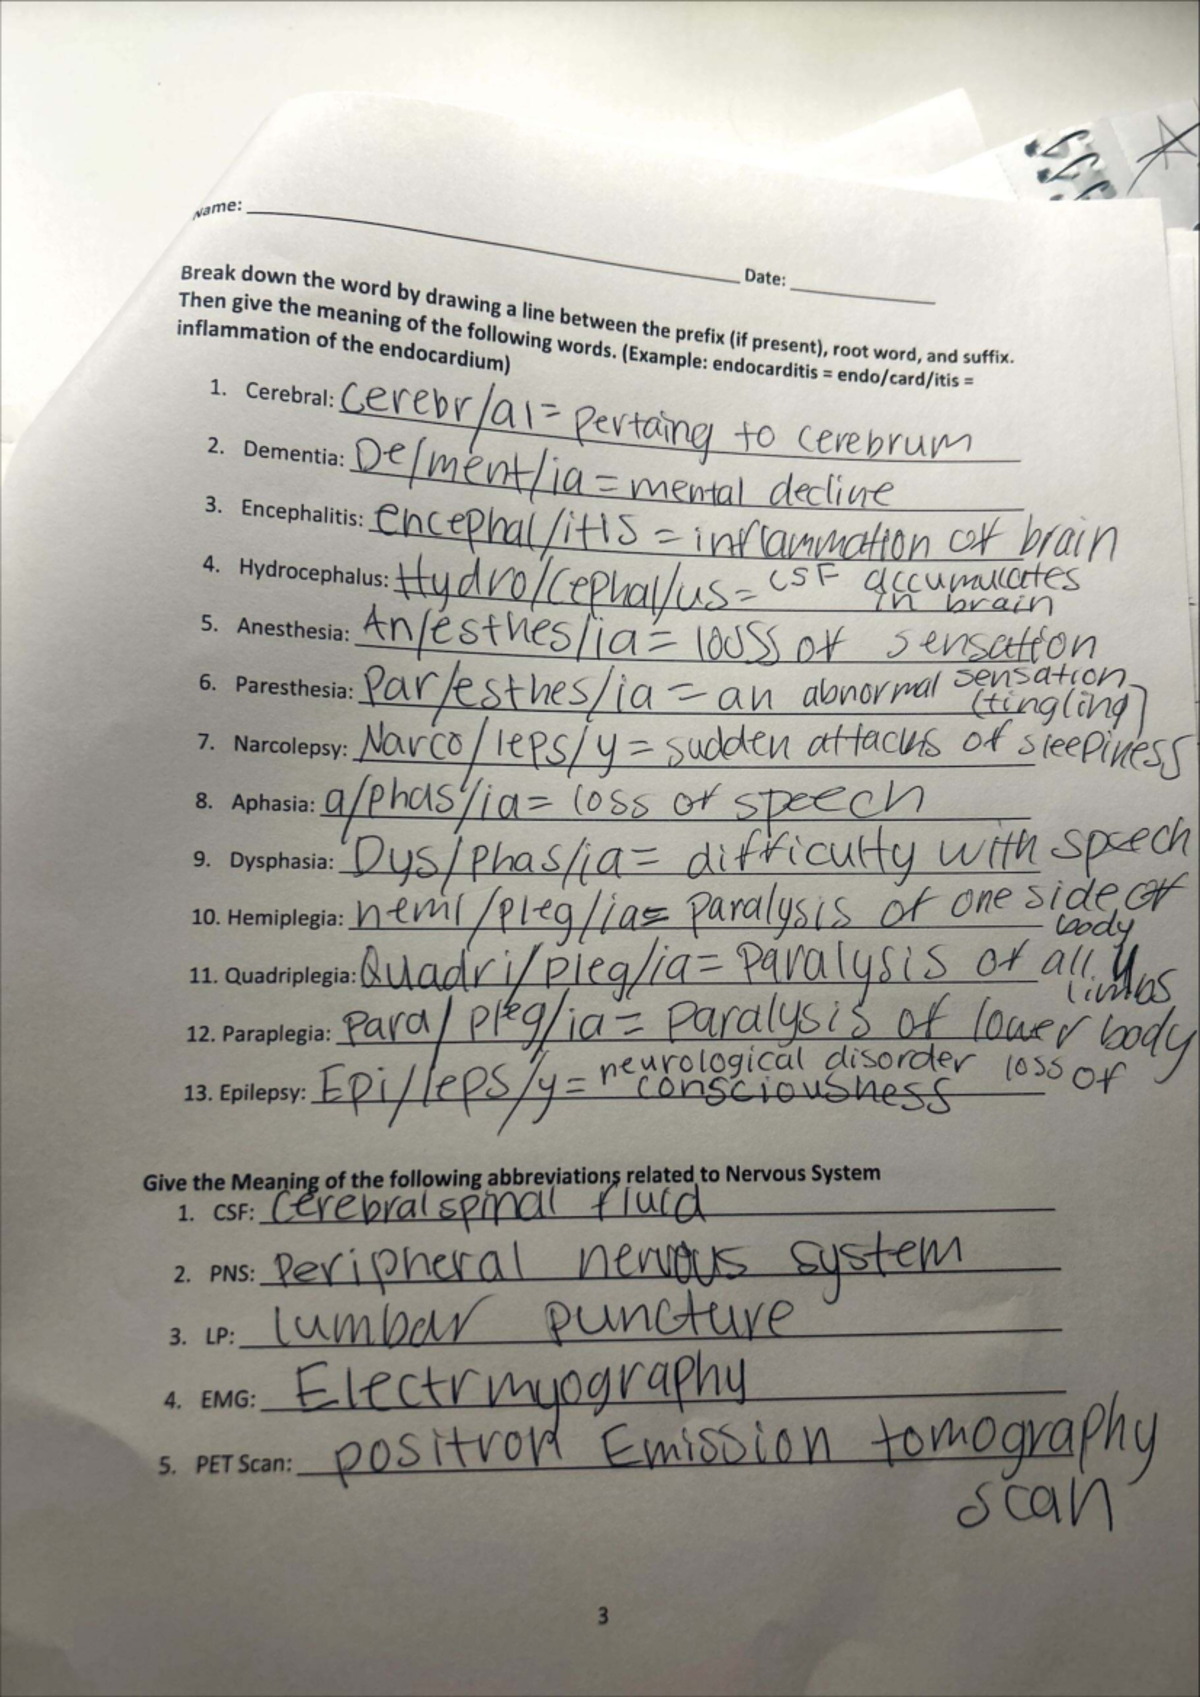 Name: ____________ Date: ____________
Break down the word by drawing a line between the prefix (if present), root word, and suffix.
Then give the meaning of the following words. (Example: endocarditis = endo/card/itis =
inflammation of the endocardium)
1. Cerebral: Cerebr/al= pertaing to cerebrum
2. Dementia: De/ment/ia = mental decline
3. Encephalitis: encephal/itis = inflammation of brain
4. Hydrocephalus: Hydro/cephal/us= CSF accumulates
in brain
5. Anesthesia: An/esthes/ia= loss of sensation
6. Paresthesia: Par/esthes/ia = an abnormal sensation
(tingling)
7. Narcolepsy: Narco/leps/y = sudden attacks of sleepiness
8. Aphasia: a/phas/ia= loss of speech
9. Dysphasia: Dys/phas/ia= difficulty with speech
10. Hemiplegia: hemi/pleg/ia= paralysis of one side of
body
11. Quadriplegia: Quadri/pleg/ia= paralysis of all 4
limbs
12. Paraplegia: para/pleg/ia= paralysis of lower body
13. Epilepsy: Epi/leps/y= neurological disorder loss of
consciousness
Give the Meaning of the following abbreviations related to Nervous System
1. CSF: Cerebral spinal fluid
2. PNS: Peripheral nervous system
3. LP: lumbar puncture
4. EMG: Electrmyography
5. PET Scan: positron Emission tomography
scan
3